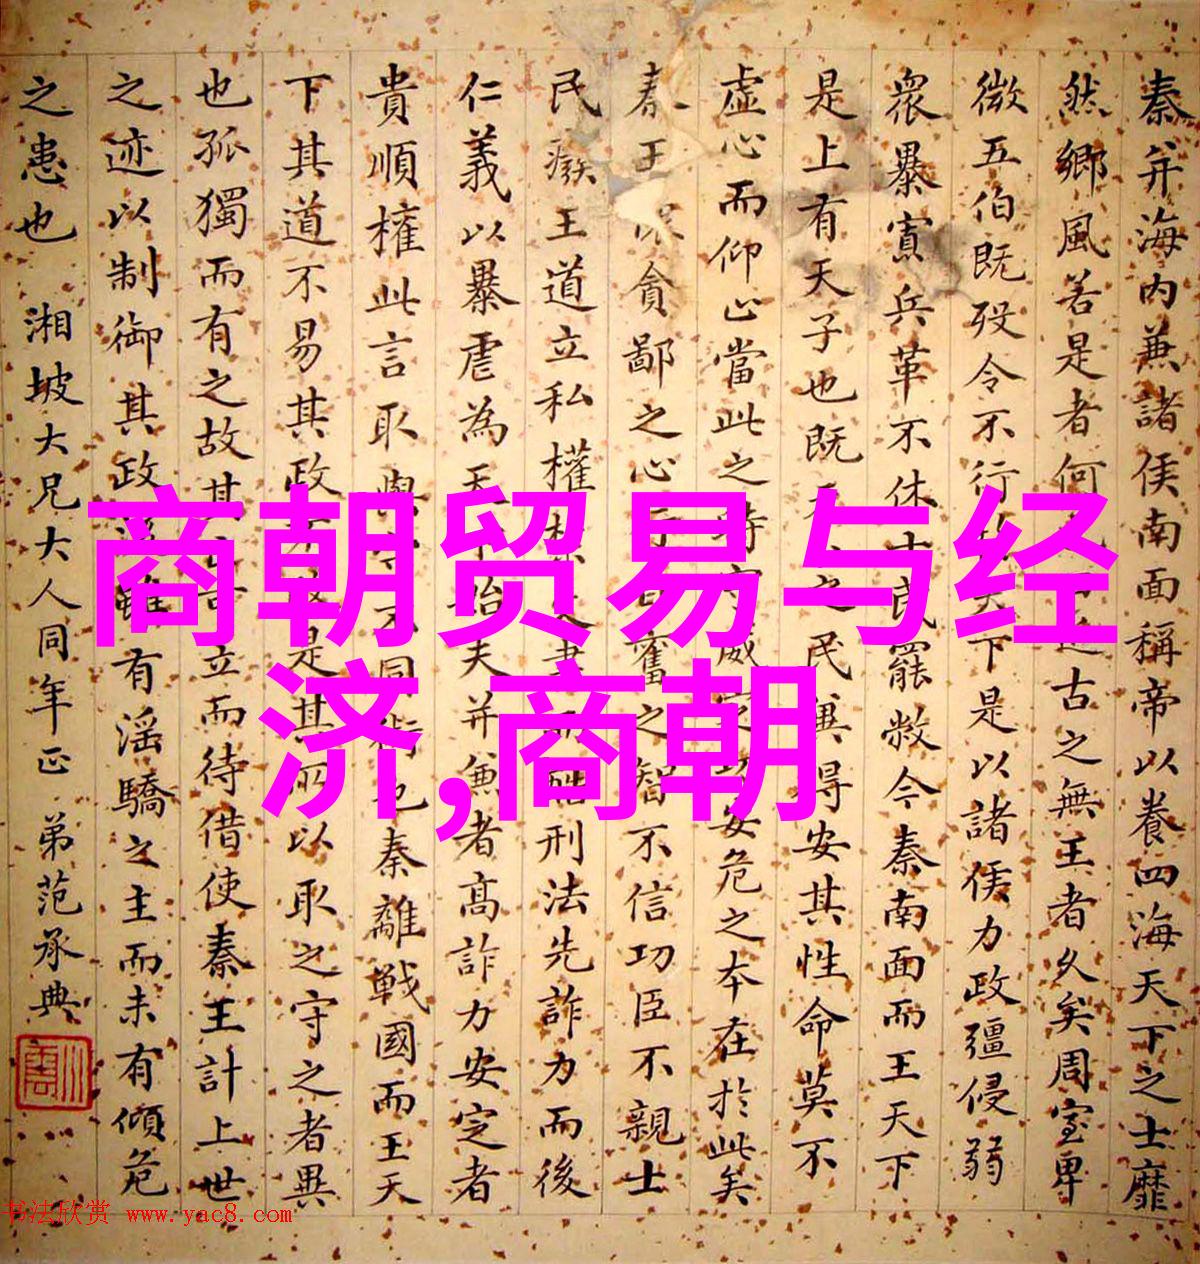 秦并海内兼諸侯南面稱帝以養四海天下之士靡
然鄉風若是者何也古之無王者久矣周室卑
微五伯既歿令不行於天下是以諸侯力政彊侵弱
衆暴寡兵革不休士民罷敝今秦南面而王天下
是上有天子也既元之民冀得安其性命莫不
虛心而仰上當此之時守威定功安危之本在於此矣
秦王懷貪鄙之心行自奮之智不信功臣不親士
民廢王道立私權禁文書而酷刑法先詐力而後
仁義以暴虐為天下始夫并兼者高詐力安定者
貴順權此言取與守不同術也秦離戰國而王天
下其道不易其政不改是其所以取之守之者異
也孤獨而有之故其亡可立而待借使秦王計上世
之迹以制御其政後雖有淫驕之主而未有傾危
之患也 湘坡大兄大人同年正 弟范承典
商朝贸易与经
济,商朝
书法欣赏 www.yac8.com